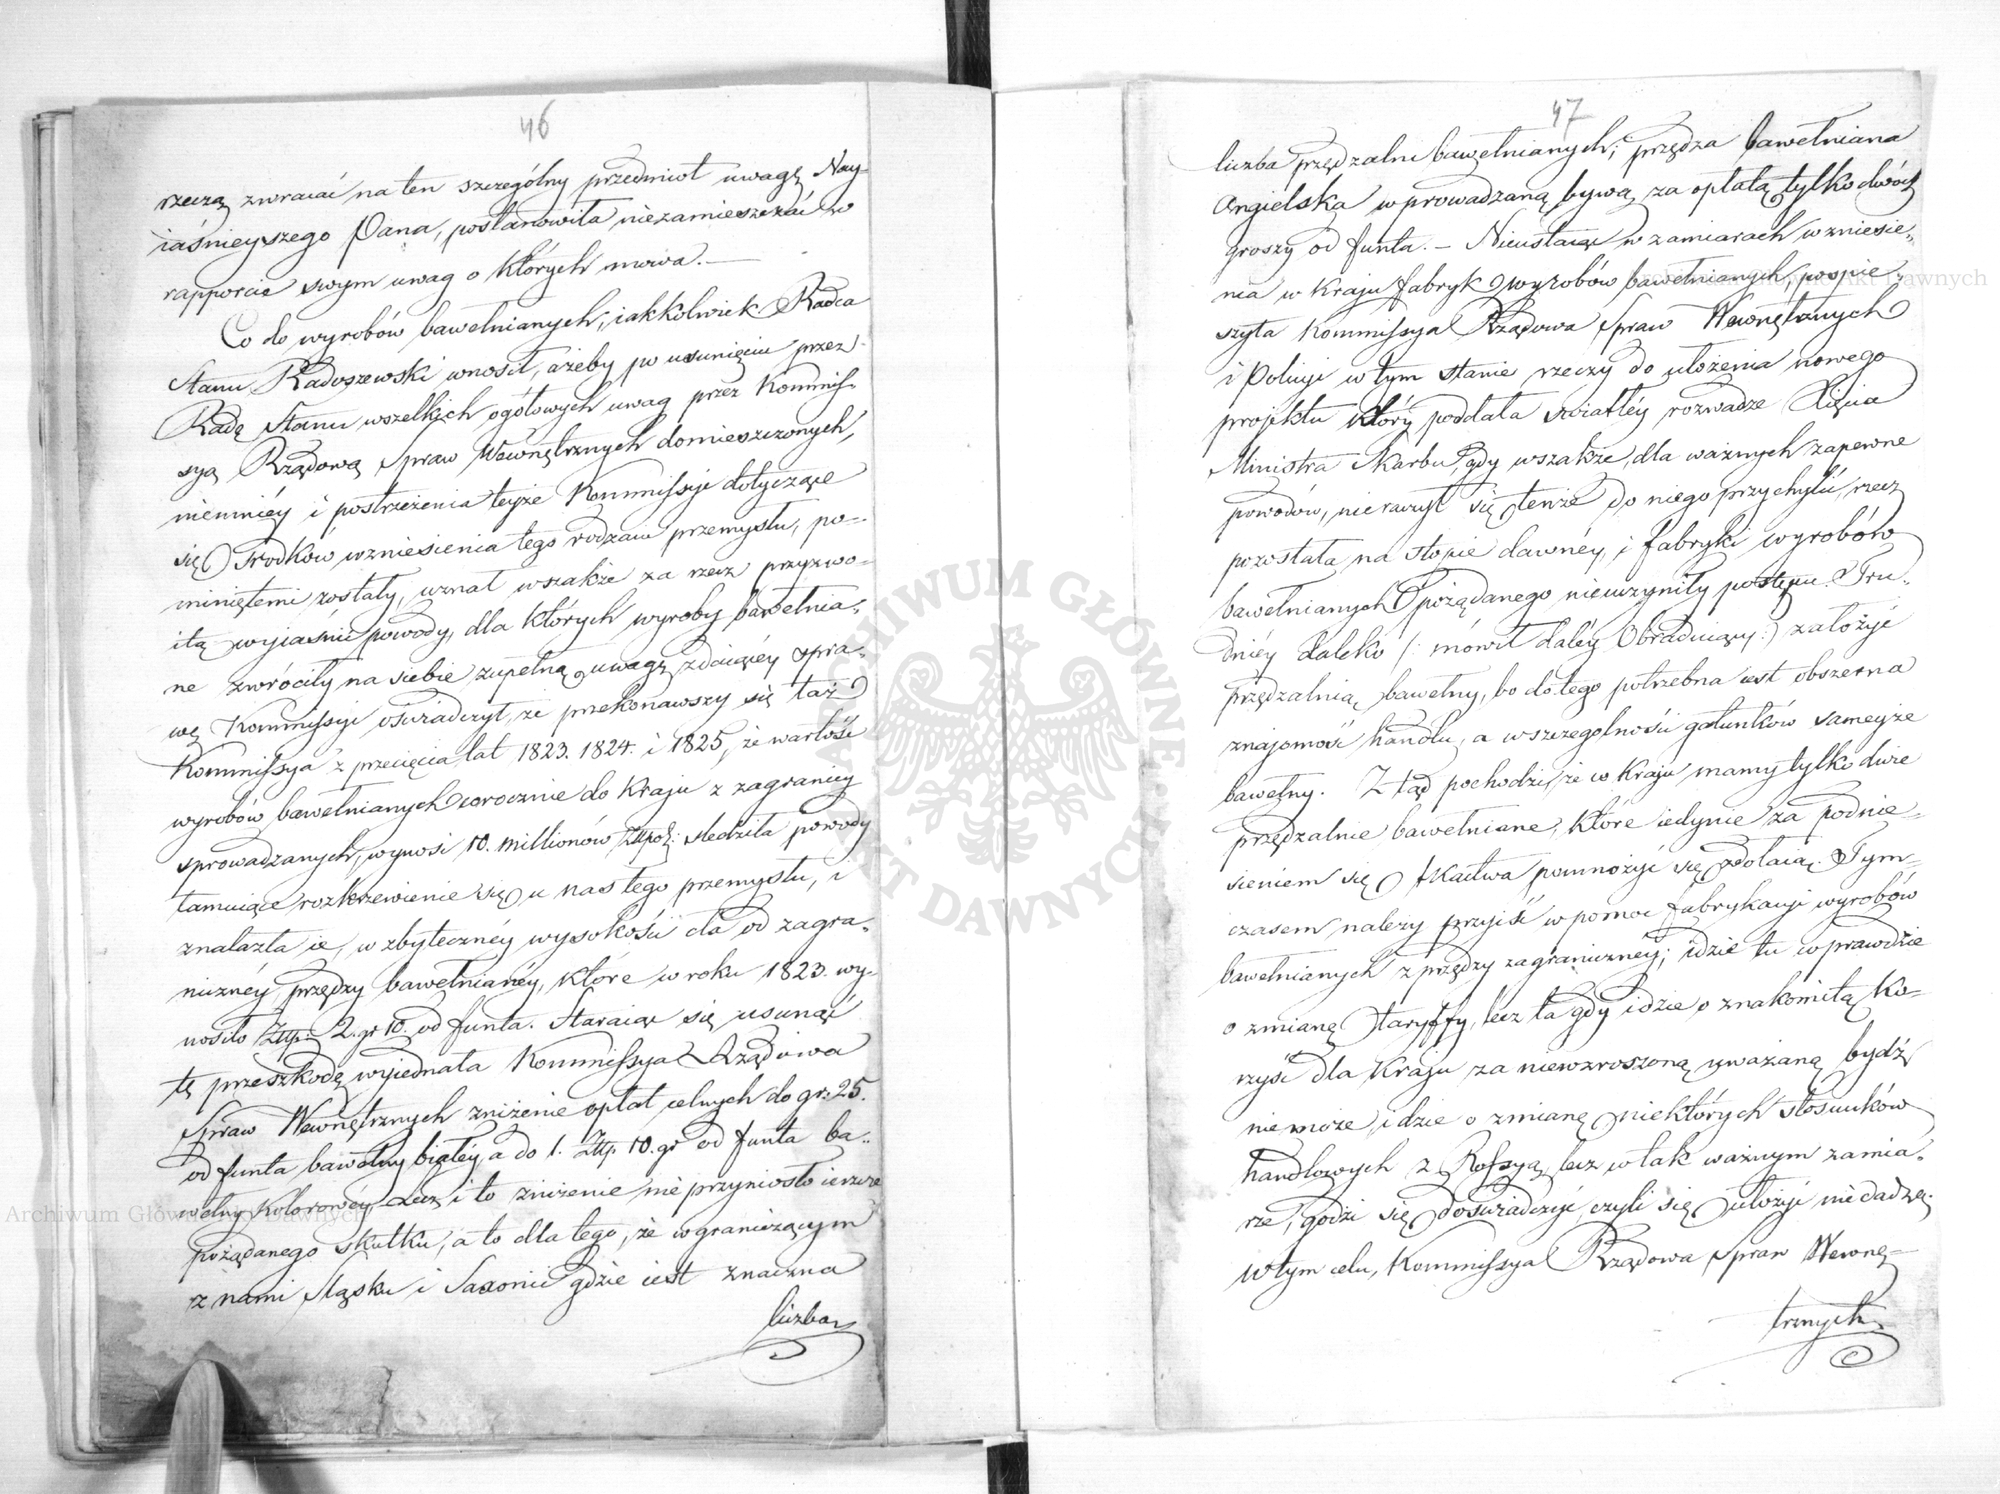 46
rzeczą zwracać na ten szczególny przedmiot uwagę Nay-
iaśnieyszego Pana, postanowiła niezamieszczać w
rapporcie swym uwag o których mowa. —
Co do wyrobów bawełnianych, iakkolwiek Radca
Stanu Radoszewski wnosił, ażeby po usunięciu przez
Radę Stanu wszelkich ogółowych uwag przez Kommis-
syą Rządową Spraw Wewnętrznych domieszczonych,
niemniéy i postrzeżenia teyże Kommissyi dotyczące
się środków wzniesienia tego rodzaiu przemysłu, po-
miniętemi zostały, uznał wszakże za rzecz przyzwo-
itą wyiaśnić powody, dla których wyroby bawełnia-
ne zwróciły na siebie zupełną uwagę zdaiącéy spra-
wę Kommissyi oświadczył, że przekonawszy się taż
Kommissya z przecięcia lat 1823. 1824. i 1825, że wartość
wyrobów bawełnianych corocznie do Kraju z zagranicy
sprowadzanych, wynosi 10. millionów Złpol: śledziła powody
tamuiące rozkrzewienie się u nas tego przemysłu, i
znalazła ie, w zbytecznéy wysokości cła od zagra-
nicznéy przędzy bawełnianéy, które w roku 1823. wy-
nosiło Złp: 2. gr 10. od funta. Staraiąc się usunąć
tę przeszkodę wyjednała Kommissya Rządowa
Spraw Wewnętrznych zniżenie opłat celnych do gr: 25.
od funta bawełny białéy, a do 1. Złp. 10. gr od funta ba-
wełny kolorowéy. Lecz i to zniżenie nie przyniosło ieszcze
pożądanego skutku, a to dla tego, że w graniczącym
z nami Sląsku i Saxonii gdzie iest znaczna
liczba
47
liczba przędzalni bawełnianych; przędza bawełniana
Angielska wprowadzaną bywa za opłatą tylko dwóch
groszy od funta. — Nieustaiąc w zamiarach wzniesie-
nia w Kraju fabryk wyrobów bawełnianych, pospie-
szyła Kommissya Rządowa Spraw Wewnętrznych
i Policyi w tym stanie rzeczy do ułożenia nowego
projektu który poddała światłéy rozwadze Xięcia
Ministra Skarbu, gdy wszakże, dla ważnych zapewne
powodów, nieraczył się tenże do niego przychylić, rzecz
pozostała na stopie dawnéy, i fabryki wyrobów
bawełnianych pożądanego nieuczyniły postępu. Tru-
dniéy daleko /: mówił daléy Obradniący :/ założyć
przędzalnią bawełny, bo do tego potrzebna iest obszerna
znajomość handlu, a w szczególności gatunków sameyże
bawełny. Ztąd pochodzi, że w Kraju mamy tylko dwie
przędzalnie bawełniane, które iedynie za podnie-
sieniem się tkactwa pomnożyć się zdołaią. Tym-
czasem należy przyiść w pomoc fabrykacyi wyrobów
bawełnianych z przędzy zagranicznéy; idzie tu wprawdzie
o zmianę Taryffy, lecz ta gdy idzie o znakomitą ko-
rzyść dla Kraju za niewzroszoną uważaną bydź
niemoże, idzie o zmianę niektórych stosunków
handlowych z Rossyą, lecz w tak ważnym zamia-
rze, godzi się doświadczyć, czyli się ułożyć niedadzą.
W tym celu, Kommissya Rządowa Spraw Wewnę-
trznych